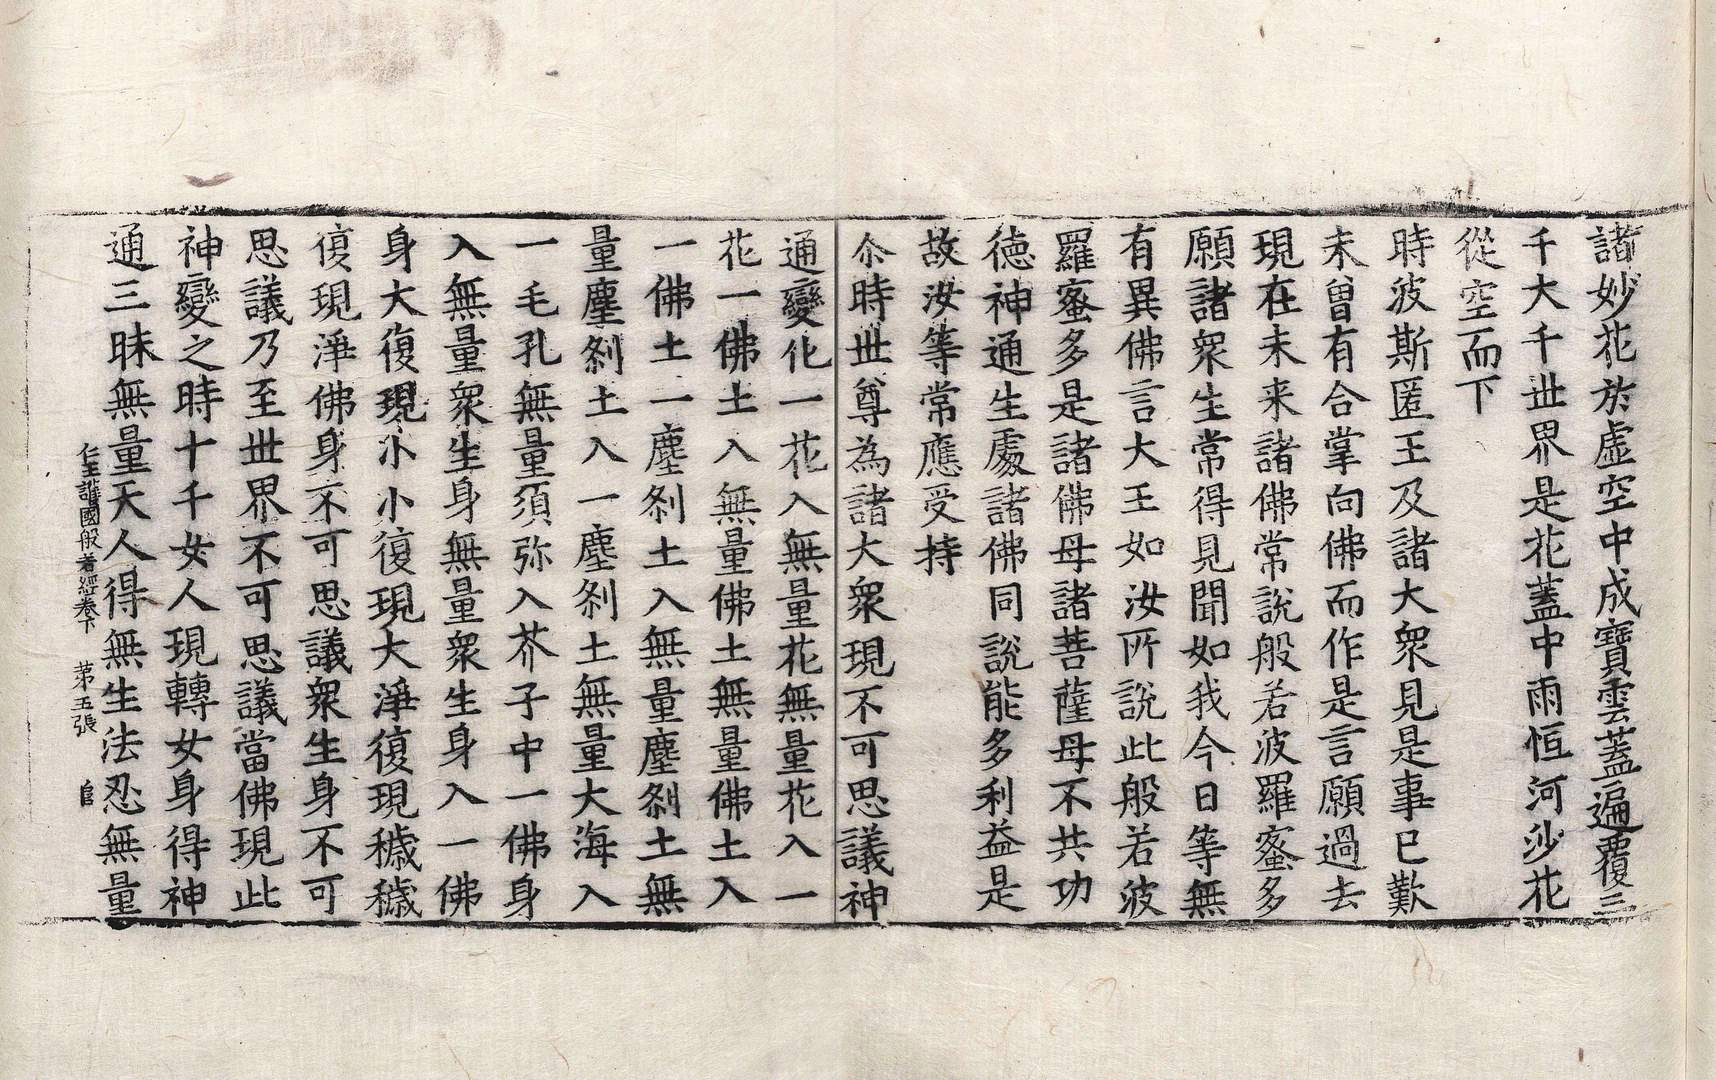 諸妙花於虛空中成寶雲蓋遍覆三
千大千丗界是花蓋中雨恒河沙花
從空而下
時波斯匿王及諸大衆見是事已歎
未曾有合掌向佛而作是言願過去
現在未来諸佛常說般若波羅蜜多
願諸衆生常得見聞如我今日等無
有異佛言大王如汝所說此般若波
羅蜜多是諸佛母諸菩薩母不共功
德神通生處諸佛同說能多利益是
故汝等常應受持
尒時丗尊為諸大衆現不可思議神
通變化一花入無量花無量花入一
花一佛土入無量佛土無量佛土入
一佛土一塵刹土入無量塵刹土無
量塵刹土入一塵刹土無量大海入
一毛孔無量須弥入芥子中一佛身
入無量衆生身無量衆生身入一佛
身大復現小小復現大淨復現穢穢
復現淨佛身不可思議衆生身不可
思議乃至丗界不可思議當佛現此
神變之時十千女人現轉女身得神
通三昧無量天人得無生法忍無量
仁王護國般若經卷下 苐五張